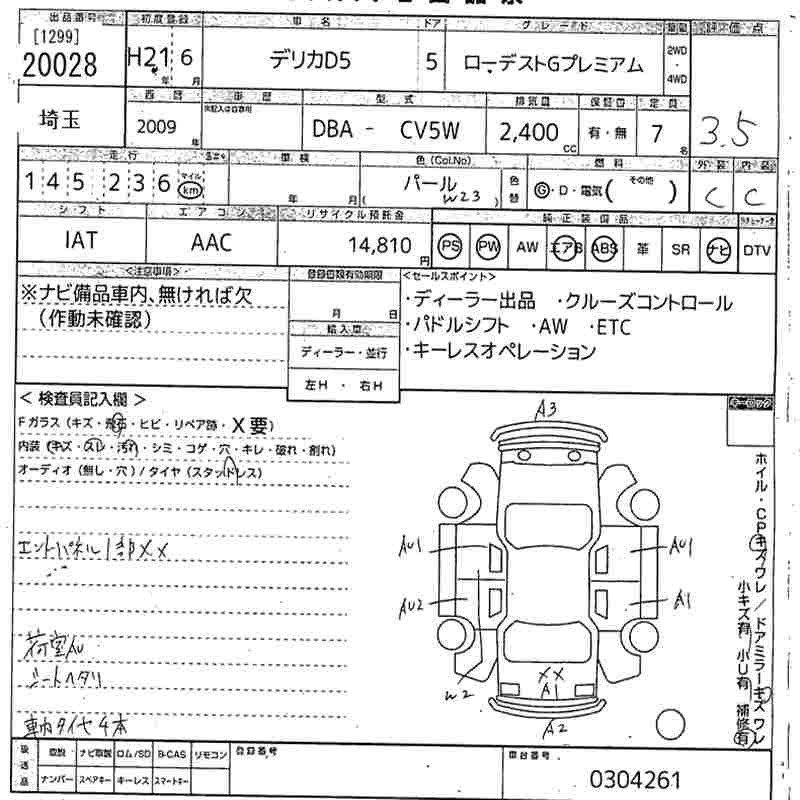 出品番号 初度登録 車名 ドア グレード 車両 評価点
[1299]
20028 H21 6 デリカD5 5 ローデストGプレミアム 2WD・4WD
年 月
埼玉 西暦 車歴 型式 排気量 保証書 定員 3.5
2009年 DBA - CV5W 2,400cc 有・無 7名
走行 車検 色(Col.No) 燃料 外装 内装
145,236 マイル km 年 月 パール (W23) 色替 G・D・電気(その他) C C
シフト エアコン リサイクル預託金 純正装備品
IAT AAC 14,810円 PS PW AW エアB ABS 革 SR ナビ DTV
<注意事項> 登録書類有効期限 <セールスポイント>
※ナビ備品車内、無ければ欠 月 日 ・ディーラー出品 ・クルーズコントロール
(作動未確認) 輸入車 ・パドルシフト ・AW ・ETC
ディーラー・並行 ・キーレスオペレーション
左H ・ 右H
<検査員記入欄>
Fガラス(キズ・飛石・ヒビ・リペア跡・X要)
内装(キズ・スレ・汚れ・シミ・コゲ・穴・キレ・破れ・割れ)
オーディオ(無し・穴)/タイヤ(スタッドレス)
エンドパネル1部XX
荷室AU
シートヘタリ
車カタイヤ4本
A3
AU1 AU1
AU2 A1
XX
W2 A1
A2
ホイル・CPキズワレ/ドアミラーキズワレ
小キズ有 小U有 補修有
後送品 取説 ナビ取説 ロム/SD B-CAS リモコン 登録番号 車台番号
ナンバー スペアキー キーレス スマートキー 0304261